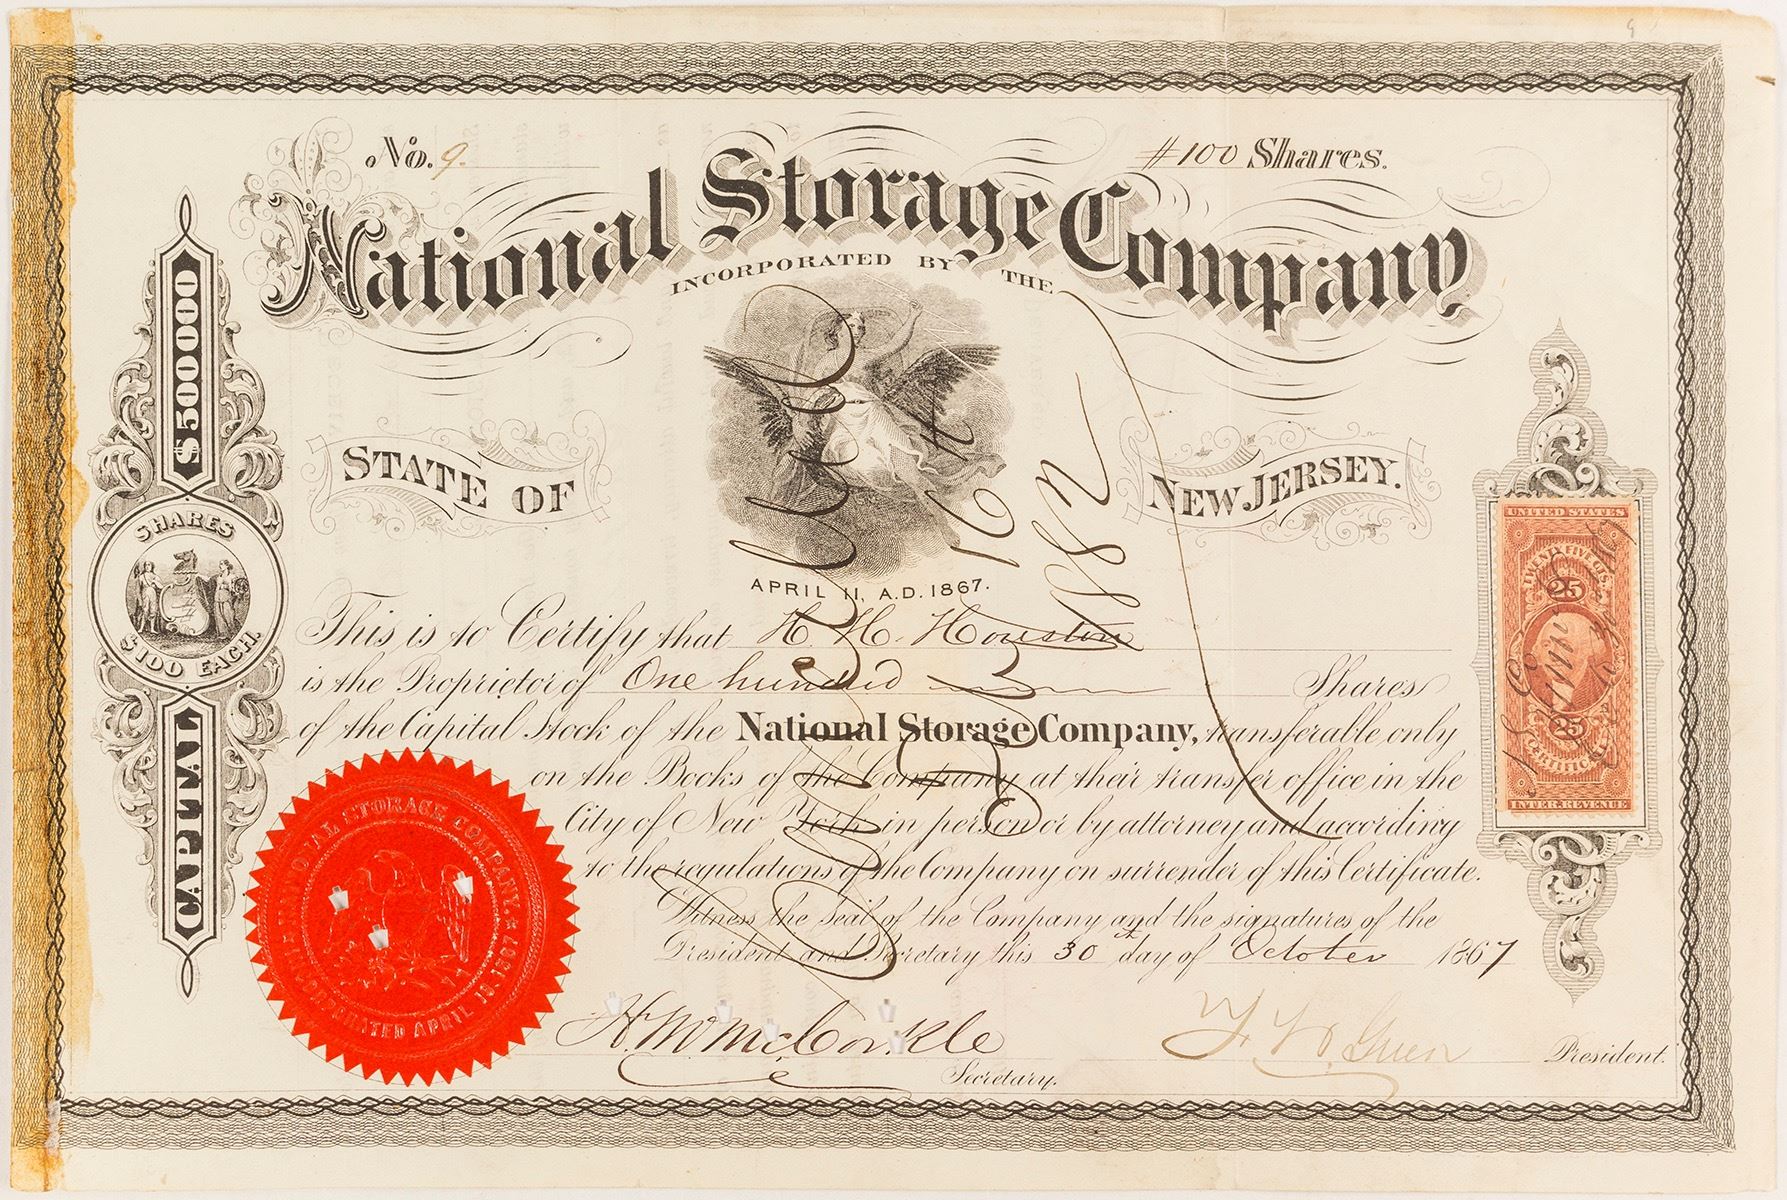 No. 9.
#100 Shares.
National Storage Company
INCORPORATED BY THE
STATE OF NEW JERSEY.
APRIL 11, A.D. 1867.
$500000
SHARES
$100 EACH.
CAPITAL
This is to Certify that H H. Houston
is the Proprietor of One hundred Shares
of the Capital Stock of the National Storage Company, transferable only
on the Books of the Company at their transfer office in the
City of New York in person or by attorney and according
to the regulations of the Company on surrender of this Certificate.
Witness the seal of the Company and the signatures of the
President and Secretary this 30th day of October 1867
H. W. McCorkle
Secretary.
President.
Cancelled
June 16th
1882
NATIONAL STORAGE COMPANY.
INCORPORATED APRIL 19. 1867
UNITED STATES
TWENTY FIVE CTS.
25
25
CERTIFICATE
INTER. REVENUE